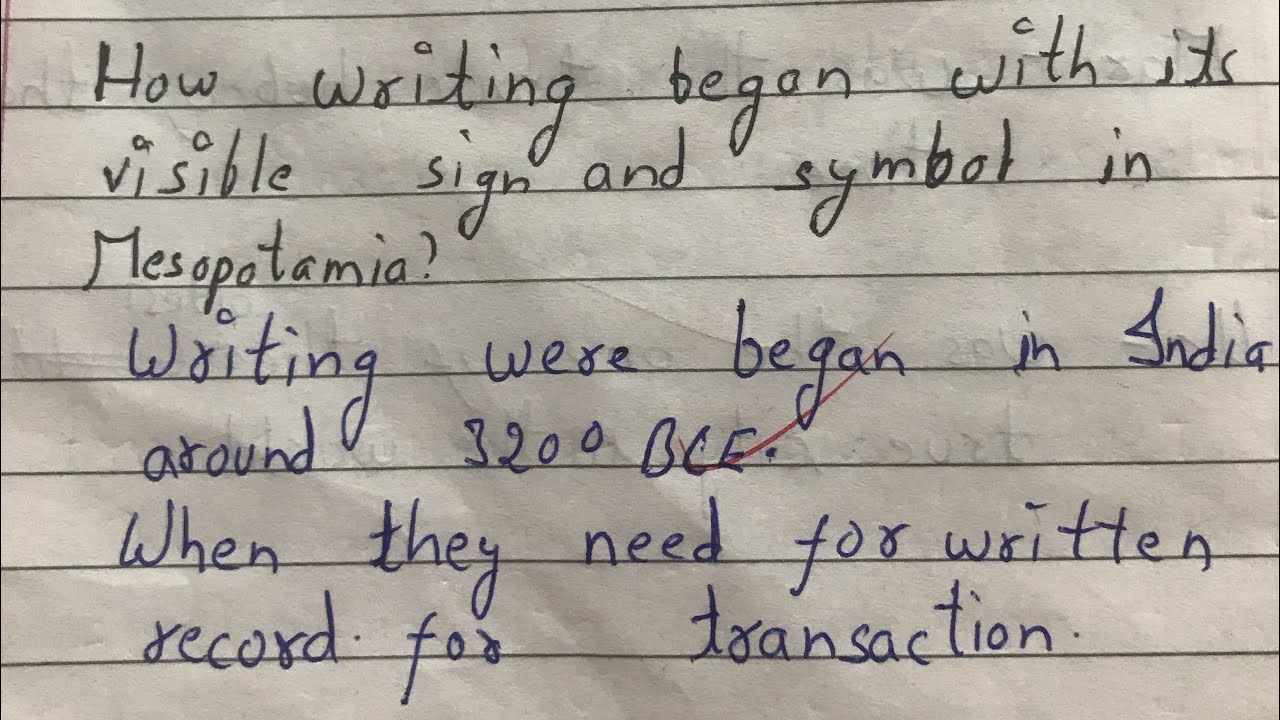 How writing began with its
visible sign and symbol in
Mesopotamia?
Writing were began in India
around 3200 BCE.
When they need for written
record. for transaction.